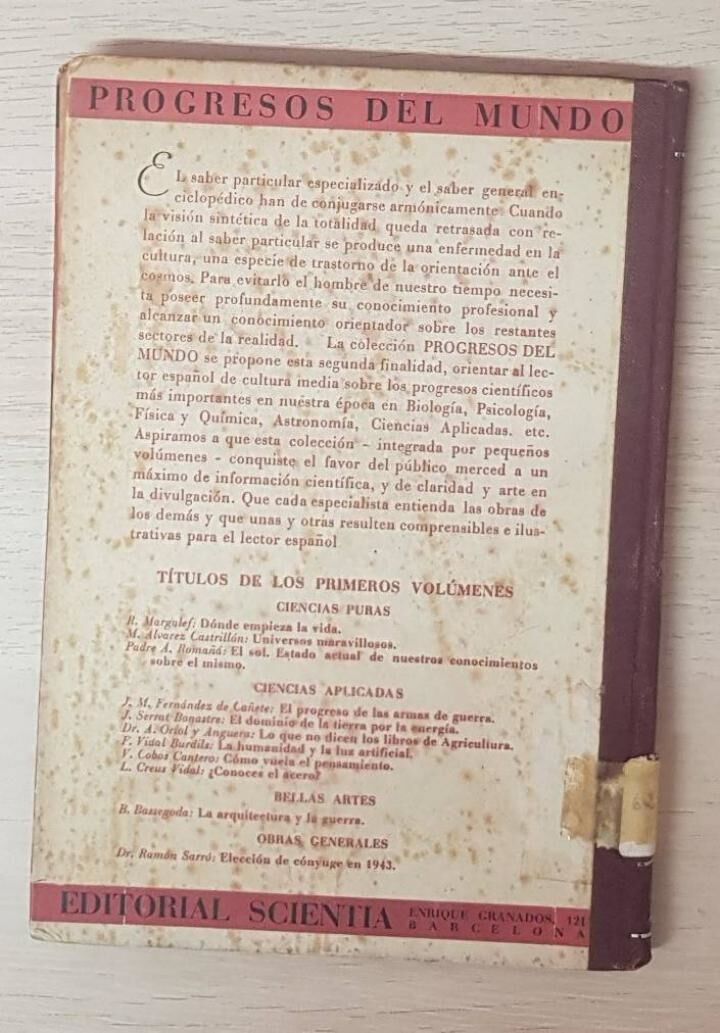 PROGRESOS DEL MUNDO
EL saber particular especializado y el saber general en-
ciclopédico han de conjugarse armónicamente. Cuando
la visión sintética de la totalidad queda retrasada con re-
lación al saber particular se produce una enfermedad en la
cultura, una especie de trastorno de la orientación ante el
cosmos. Para evitarlo el hombre de nuestro tiempo necesi-
ta poseer profundamente su conocimiento profesional y
alcanzar un conocimiento orientador sobre los restantes
sectores de la realidad. La colección PROGRESOS DEL
MUNDO se propone esta segunda finalidad, orientar al lec-
tor español de cultura media sobre los progresos científicos
más importantes en nuestra época en Biología, Psicología,
Física y Química, Astronomía, Ciencias Aplicadas. etc.
Aspiramos a que esta colección - integrada por pequeños
volúmenes - conquiste el favor del público merced a un
máximo de información científica, y de claridad y arte en
la divulgación. Que cada especialista entienda las obras de
los demás y que unas y otras resulten comprensibles e ilus-
trativas para el lector español
TÍTULOS DE LOS PRIMEROS VOLÚMENES
CIENCIAS PURAS
R. Margalef: Dónde empieza la vida.
M. Alvarez Castrillón: Universos maravillosos.
Padre A. Romañá: El sol. Estado actual de nuestros conocimientos
sobre el mismo.
CIENCIAS APLICADAS
J. M. Fernández de Cañete: El progreso de las armas de guerra.
J. Serrat Bonastre: El dominio de la tierra por la energía.
Dr. A. Oriol y Anguera: Lo que no dicen los libros de Agricultura.
F. Vidal Burdils: La humanidad y la luz artificial.
V. Cobos Cantero: Cómo vuela el pensamiento.
L. Creus Vidal: ¿Conoces el acero?
BELLAS ARTES
B. Bassegoda: La arquitectura y la guerra.
OBRAS GENERALES
Dr. Ramón Sarró: Elección de cónyuge en 1943.
EDITORIAL SCIENTIA ENRIQUE GRANADOS, 121
BARCELONA